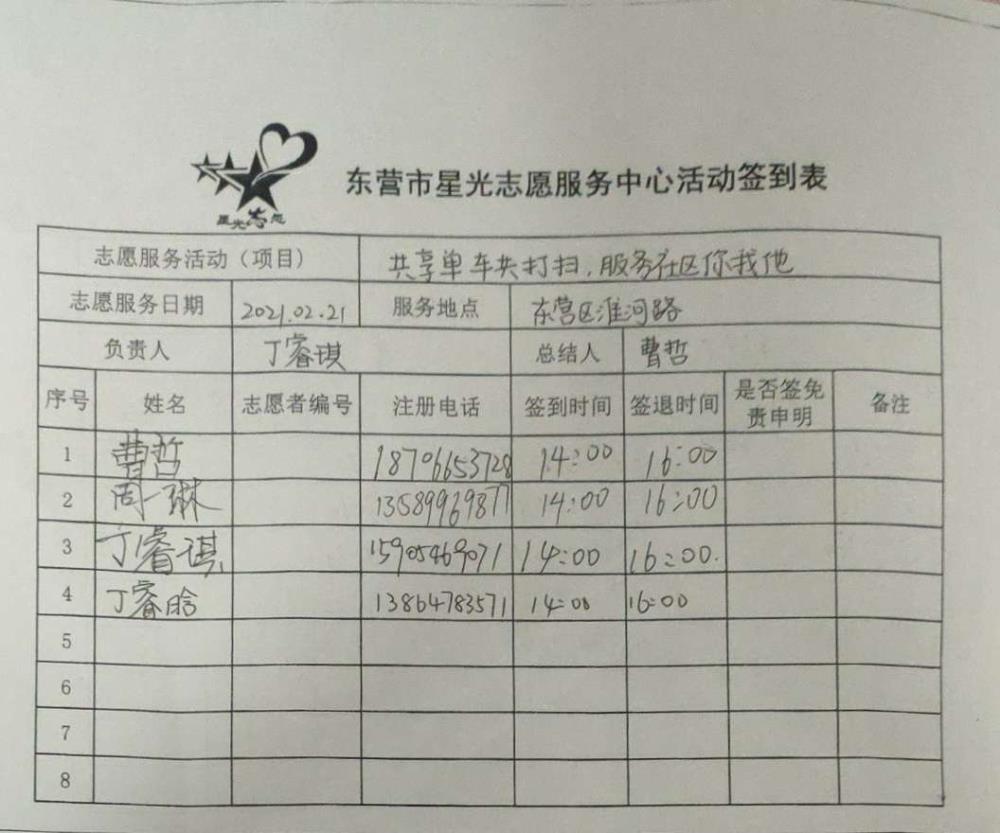 星光志愿
东营市星光志愿服务中心活动签到表
志愿服务活动（项目） 共享单车共打扫，服务社区你我他
志愿服务日期 2021.02.21 服务地点 东营区淮河路
负责人 丁睿琪 总结人 曹哲
序号 姓名 志愿者编号 注册电话 签到时间 签退时间 是否签免责申明 备注
1 曹哲 18706653728 14:00 16:00
2 周一琳 13589969877 14:00 16:00
3 丁睿琪 15905469071 14:00 16:00.
4 丁睿晗 13864783571 14:00 16:00
5
6
7
8